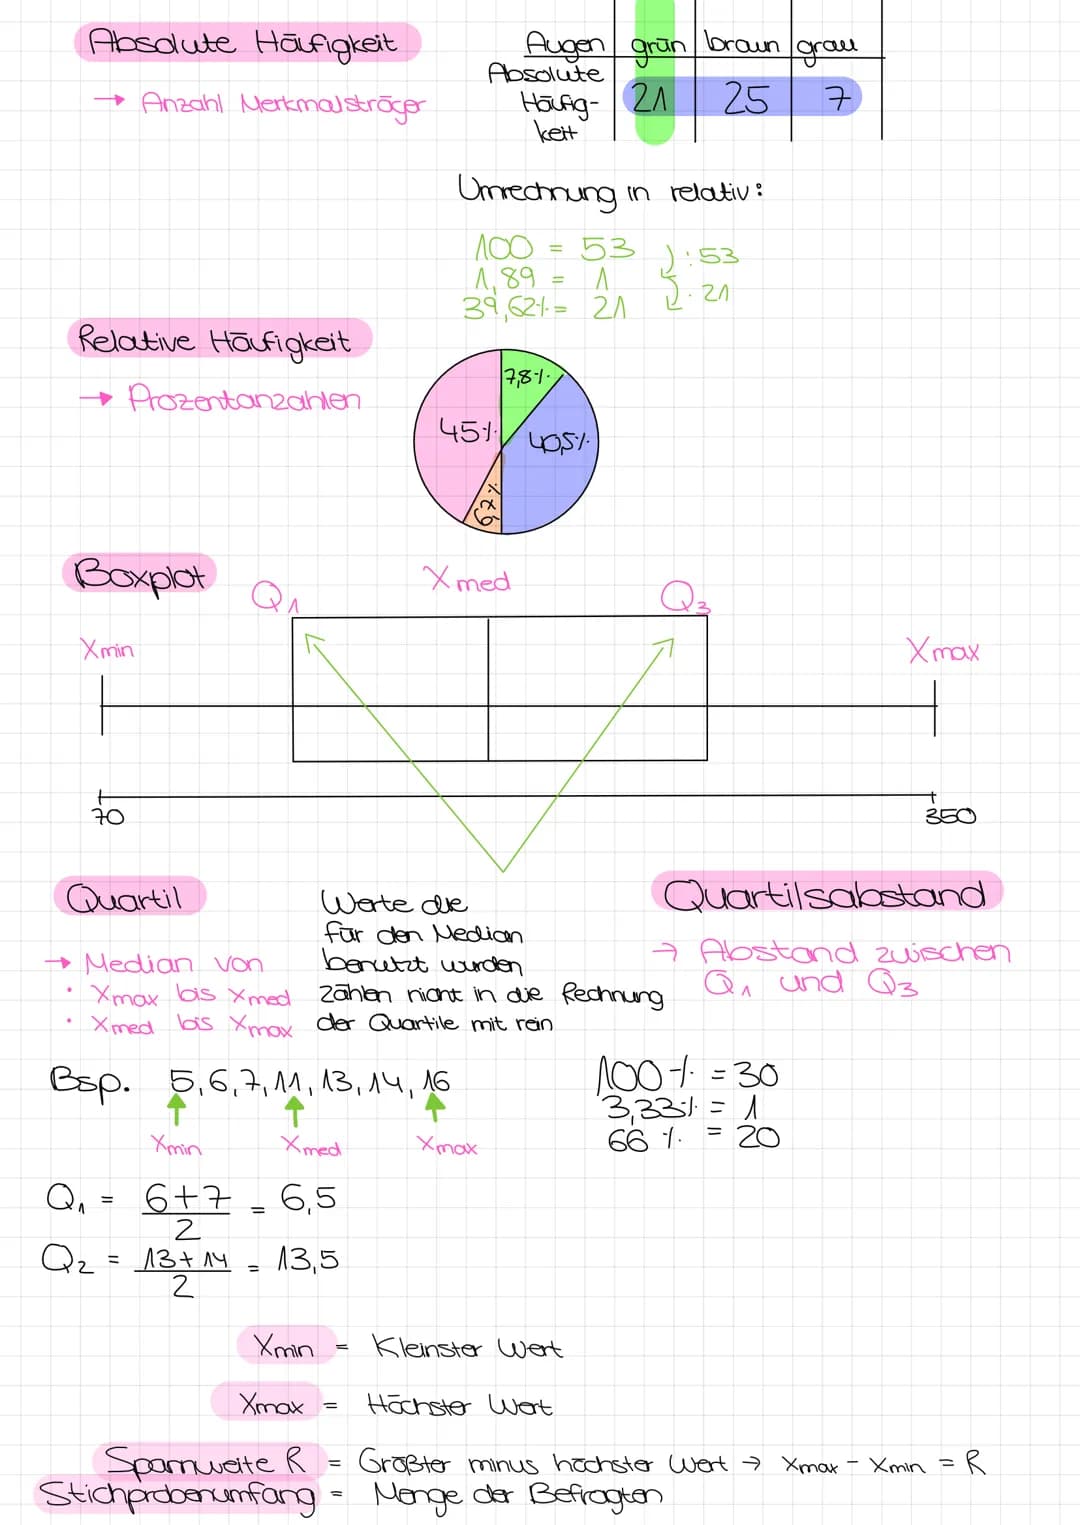 Absolute Häufigkeit
→ Anzahl Merkmalsträger
Augen grün braun grau
Absolute Häufig-keit 21 25 7
Umrechnung in relativ:
100 = 53 :53
1,89 = 1
39,62% = 21 · 21
Relative Häufigkeit
→ Prozentanzahlen
7,8%
45% 40,5%
6,7%
Boxplot
Q1 Xmed Q3
Xmin Xmax
70 350
Quartil
→ Median von
· Xmax bis Xmed
· Xmed bis Xmax
Werte die
für den Median
benutzt wurden
zählen nicht in die Rechnung
der Quartile mit rein
Quartilsabstand
→ Abstand zwischen
Q1 und Q3
Bsp. 5,6,7,11,13,14,16
Xmin Xmed Xmax
100% = 30
3,33% = 1
66 % = 20
Q1 = 6+7 / 2 = 6,5
Q2 = 13+14 / 2 = 13,5
Xmin = Kleinster Wert
Xmax = Höchster Wert
Spannweite R = Größter minus höchster Wert → Xmax - Xmin = R
Stichprobenumfang = Menge der Befragten